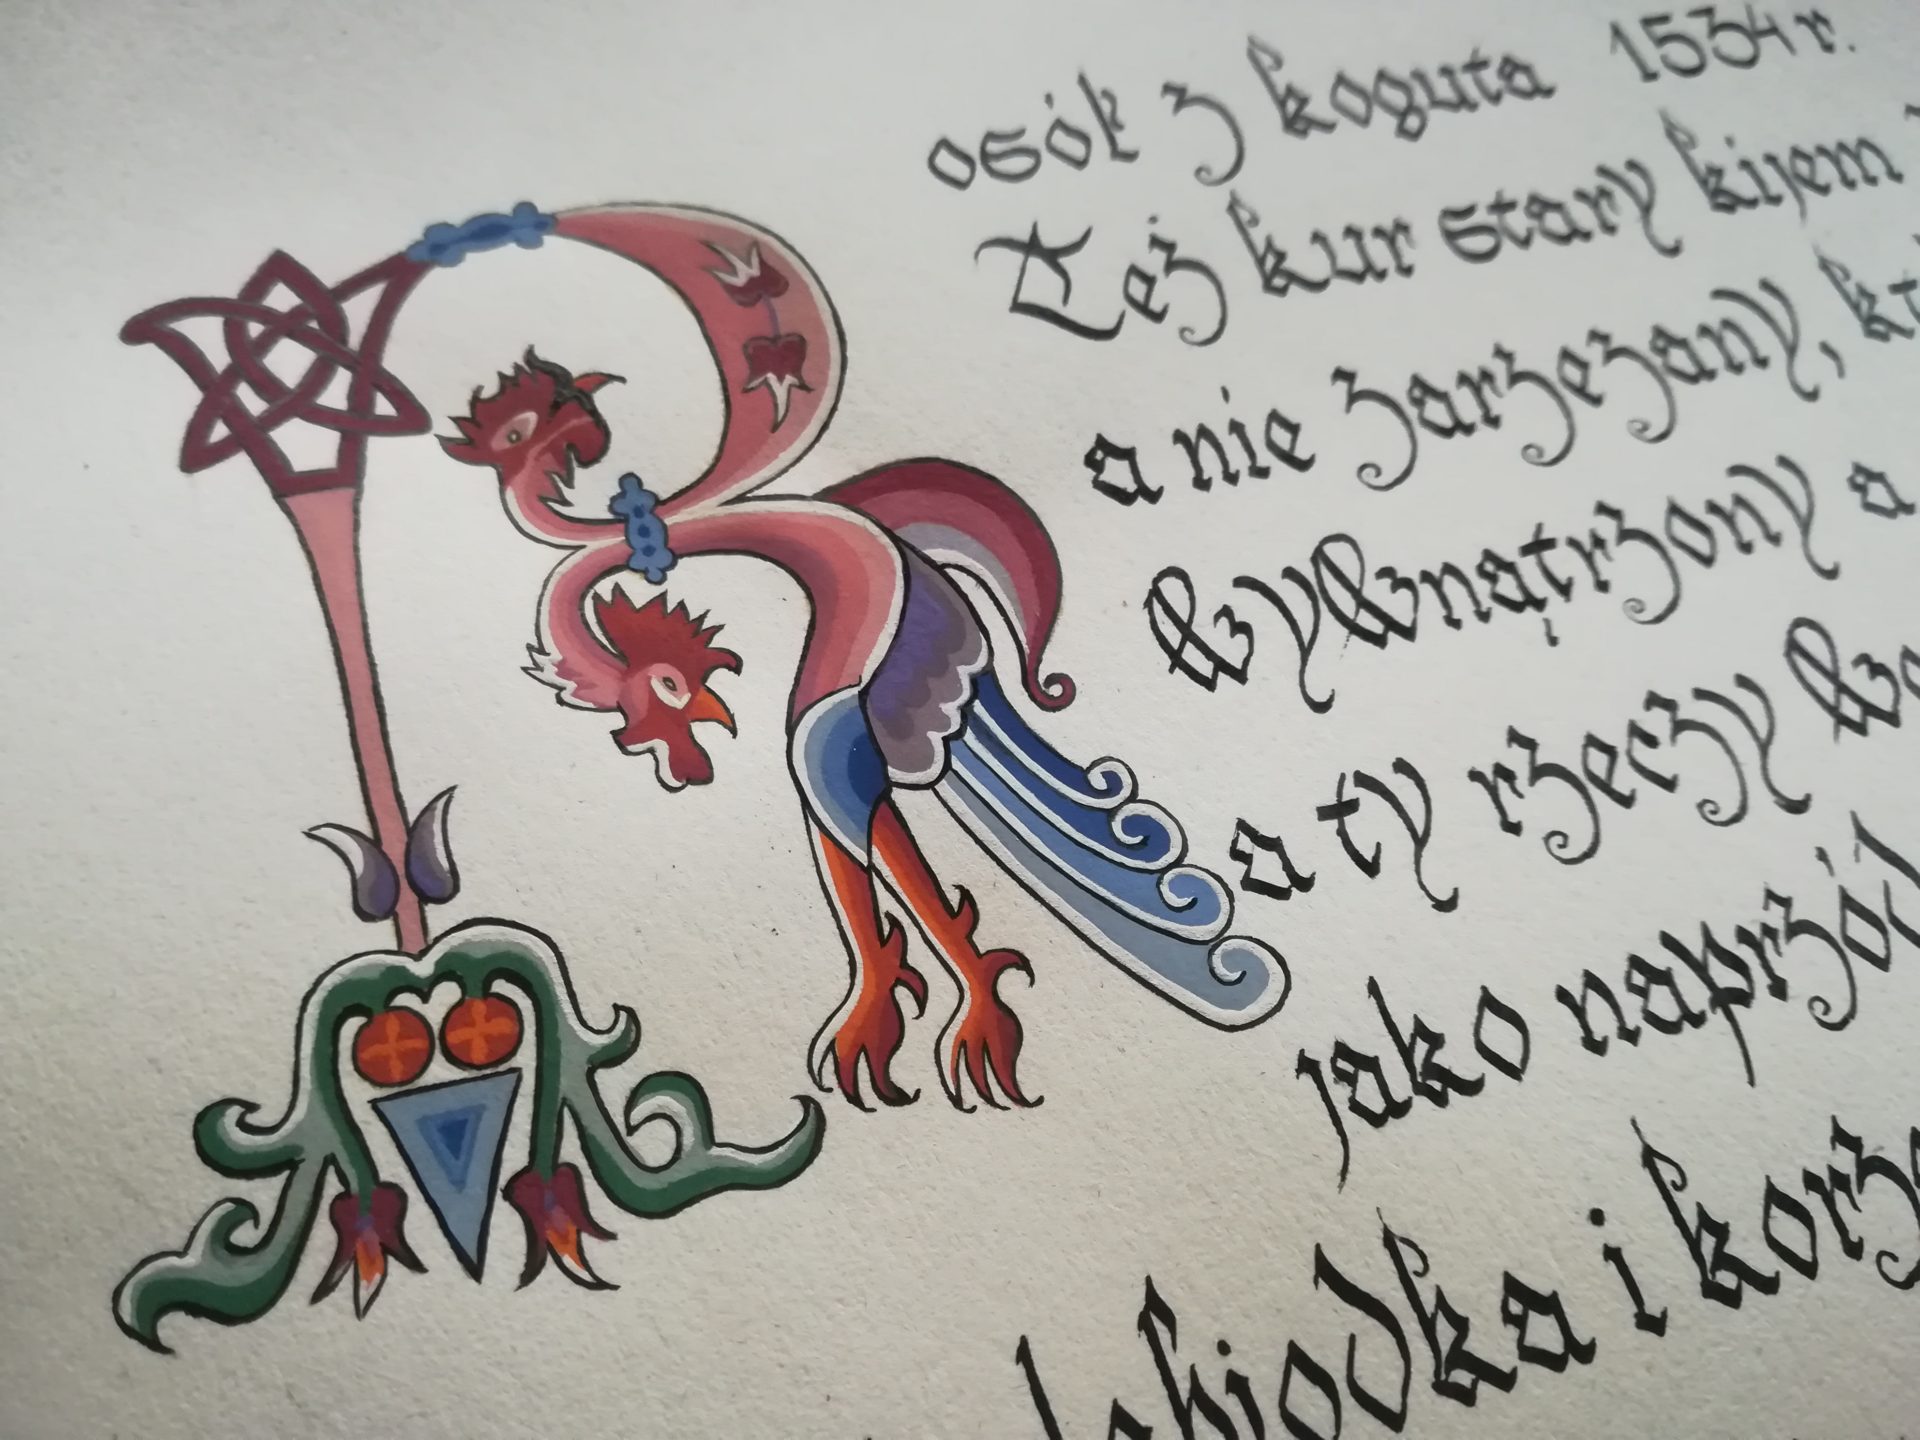 Rosół z koguta 1534 r.
Też kur stary kijem
a nie zarzezany, kt
wywnątrzony a
a ty rzeczy
jako naprzód
lebiodka i korz